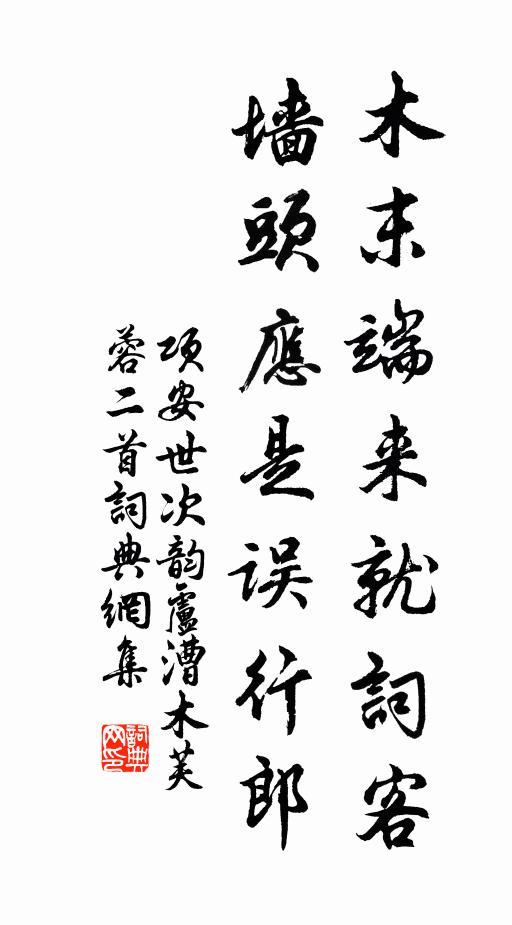 木末端来就詞客
墻頭應是误行郎
项安世次韵盧漕木芙
蓉二首詞典網集
詞典
网印